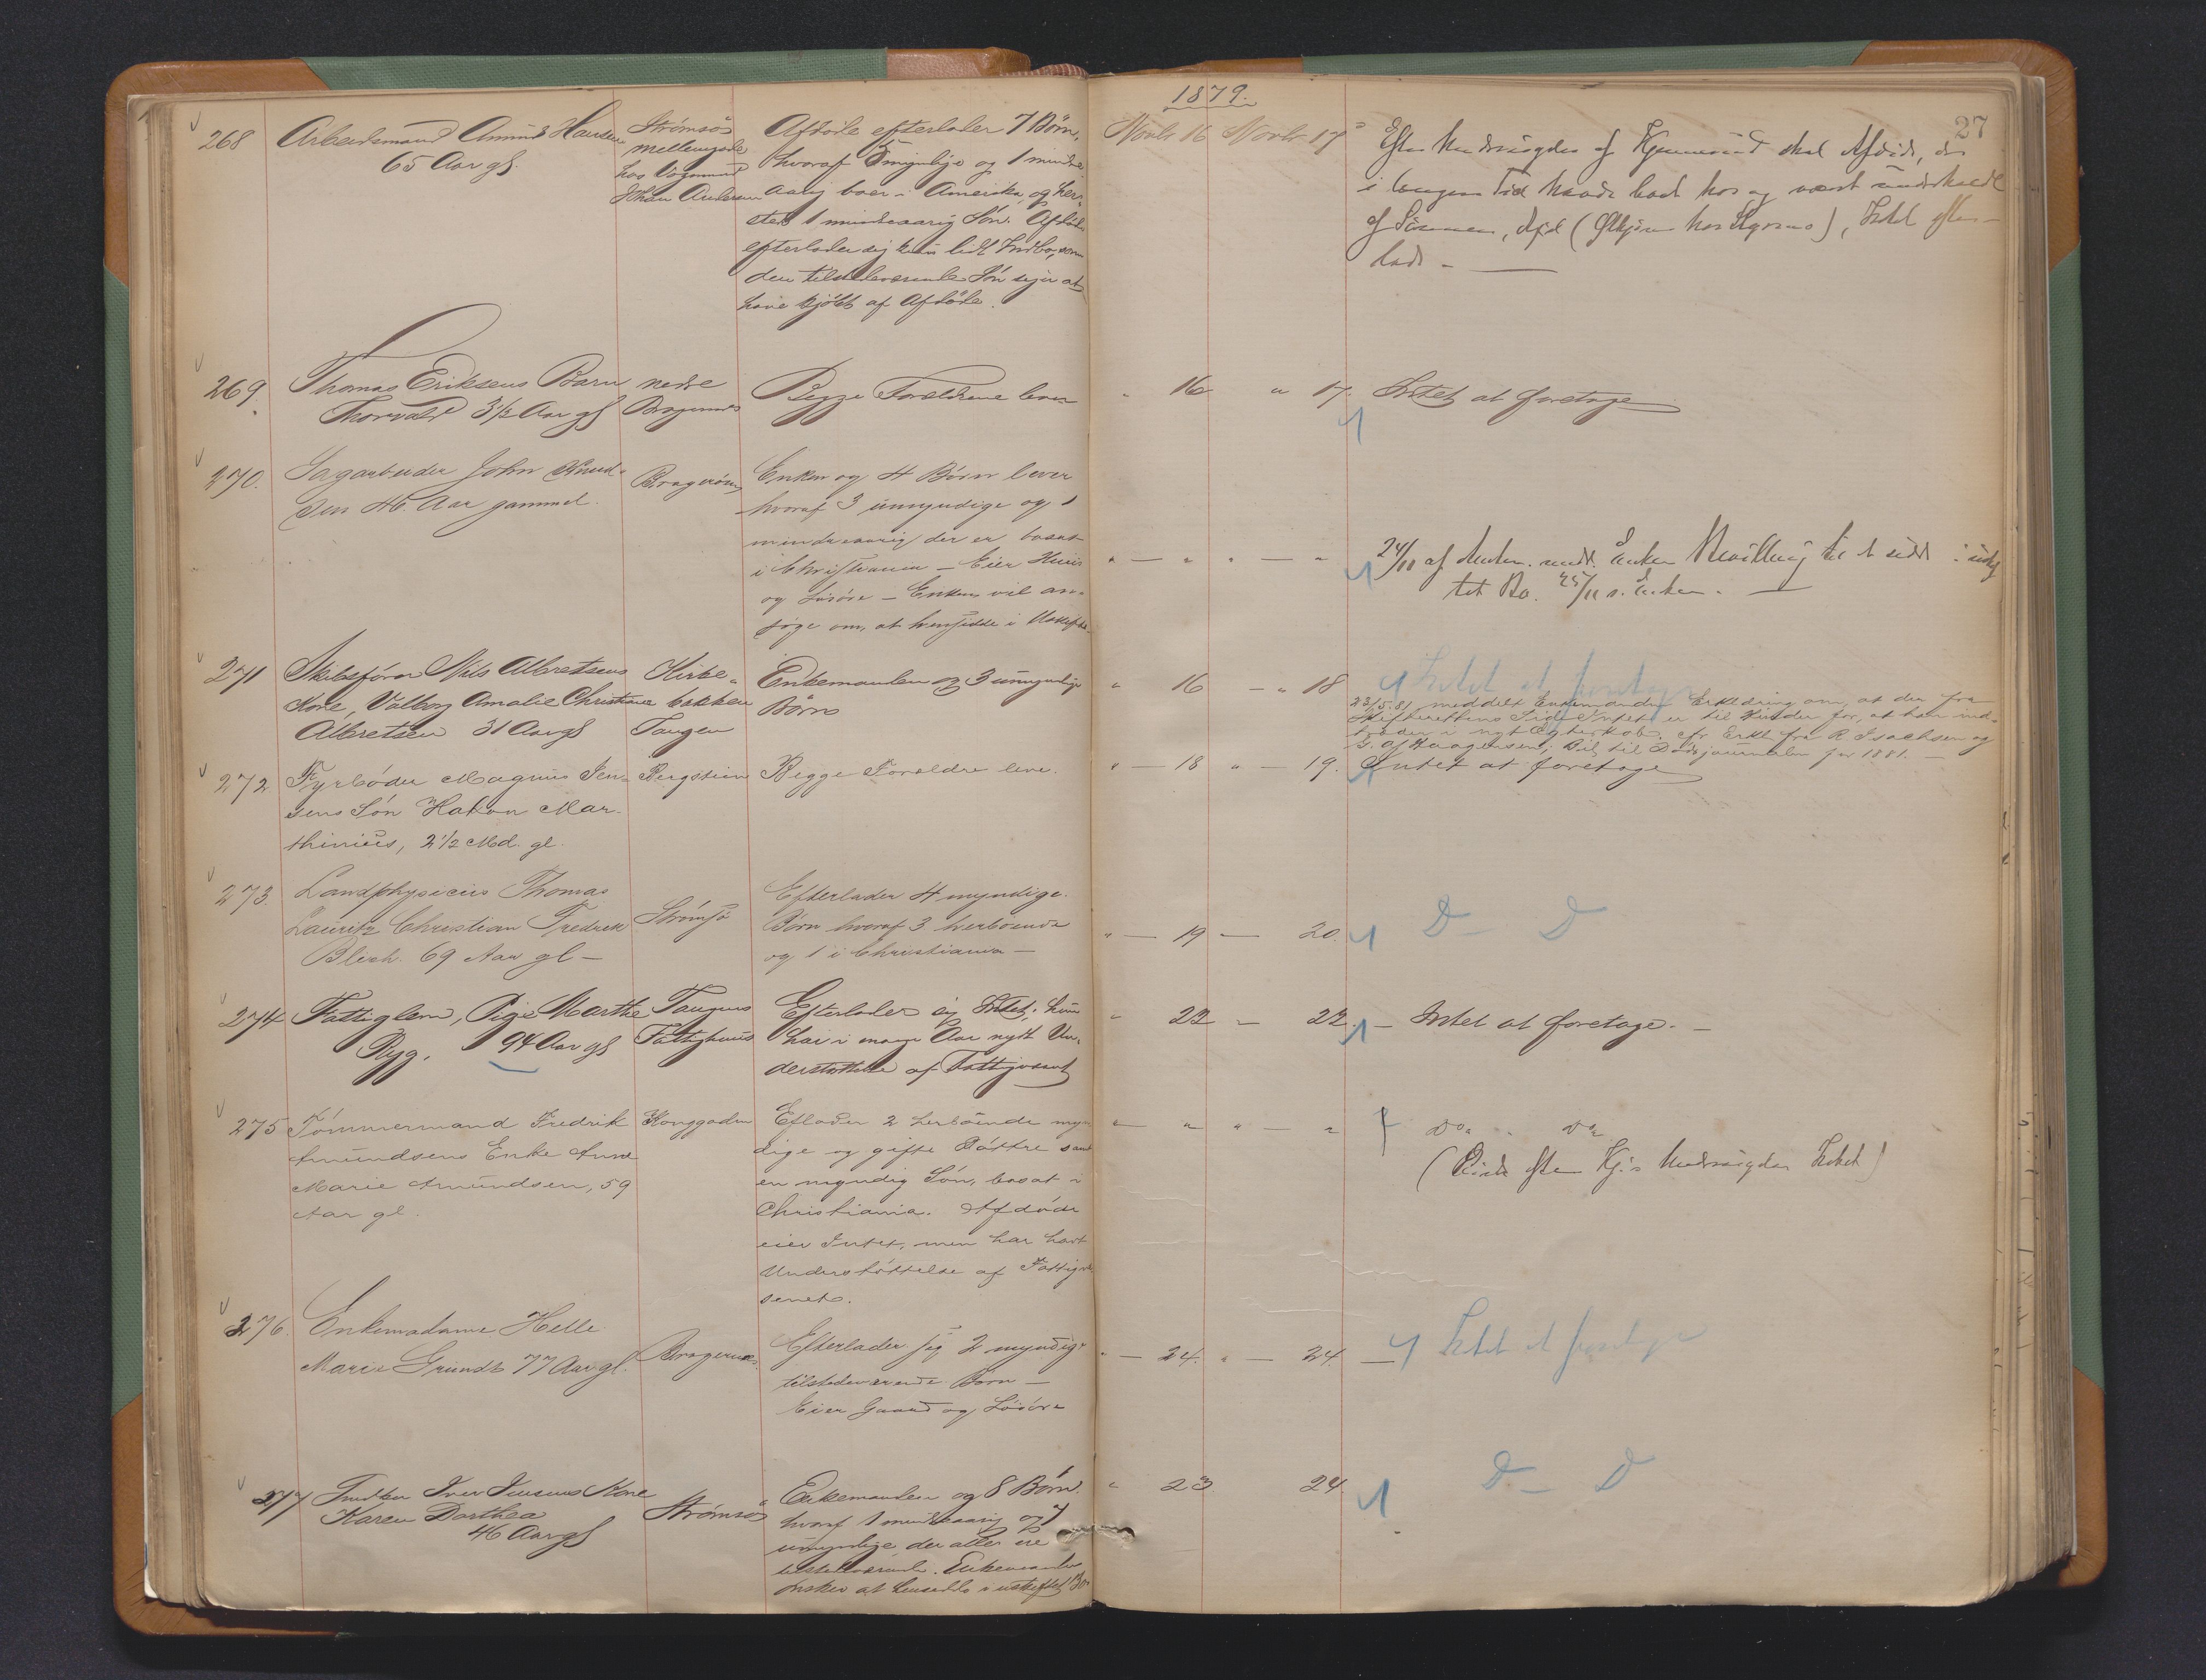 1879.
27
268 Arbeidsmand Amund Hansen
65 Aar gl
Strømsø
mellemgade
hos Vognmand
Johan Andersen
Afdøde efterlader 7 Børn,
hvoraf 5 myndige og 1 mindre
aarig boer i Amerika, og her
sted 1 mindreaarig Søn. Afdøde
efterlader sig kun lidt Indbo, som
den tilstedeværende Søn siger at
have kjøbt af Afdøde.
Novbr 16 Novbr 17
Efter skal Afdøde, der
i længere Tid havde boet hos og været underholdt
af Sønnen, Intet efter-
ladt.
269. Thomas Eriksens Barn
Thorvald 3 1/2 Aar gl
nedre
Bragernes
Begge Forældrene lever
" 16 " 17. Intet at foretage
270. Sagarbeider John Knud-
sen 46 Aar gammel.
Bragernes
Enken og 4 Børn lever
hvoraf 3 umyndige og 1
mindreaarig der er bosat
i Christiania – Eier Huus
og Løsøre – Enken vil an-
søge om, at hensidde i Uskiftet
" — " " — "
24/11 af Enken Bevilling til at sidde i uskif
tet Bo. 25/11 Enken.
271 Skibsfører Nils Albretsens
Kone, Valborg Amalie Christiane
Albretsen 31 Aar gl
Kirke-
bakken
Tangen
Enkemanden og 3 umyndige
Børn
" 16 — " 18
Intet at foretage
23/5.81 meddelt Enkemanden Erklæring om, at der fra
Skifterettens Side Intet er til Hinder for, at han ind-
træder i nyt Ægteskab, cfr. Erkl. fra R. Isachsen og
Haagensen, Bil. til Dødsjournalen for 1881.
272 Fyrbøder Magnus Jen-
sens Søn Hakon Mar-
thinius, 2 1/2 Md. gl.
Bergstien
Begge Forældre leve.
" — 18 " — 19. Intet at foretage
273. Landphysicus Thomas
Lauritz Christian Fredrik
Blich. 69 Aar gl –
Strømsø
Efterlader 4 myndige
Børn hvoraf 3 herboende
og 1 i Christiania –
" — 19 — 20. D – D
274 Fattiglem, Pige Marthe
Ryg. 94 Aar gl
Tangens
Fattighuus
Efterlader sig Intet; hun
har i mange Aar nydt Un-
derstøttelse af Fattigvæsnet
" 22 – 22. – Intet at foretage. –
275 Tømmermand Fredrik
Amundsens Enke Anne
Marie Amundsen, 59
Aar gl.
Konggaden
Eflader 2 herboende myn
dige og gifte Døttre samt
en myndig Søn, bosat i
Christiania. Afdøde
eier Intet, men har havt
Understøttelse af Fattigvæ
senet.
" — " " — " do. do.
276. Enkemadame Helle
Marie Grundt 77 Aar gl.
Bragernes.
Efterlader sig 2 myndige
tilstedeværende Børn –
Eier Gaard og Løsøre
" — 24. " — 24. – Intet at foretage
277 Snedker Iver Iversens Kone
Karen Dorthea
46 Aar gl
Strømsø
Enkemanden og 8 Børn.
hvoraf 1 mindreaarig og 7
umyndige der alle ere
tilstedeværende. Enkemanden
ønsker at hensidde i uskiftet Bo
" 23 24 D – D